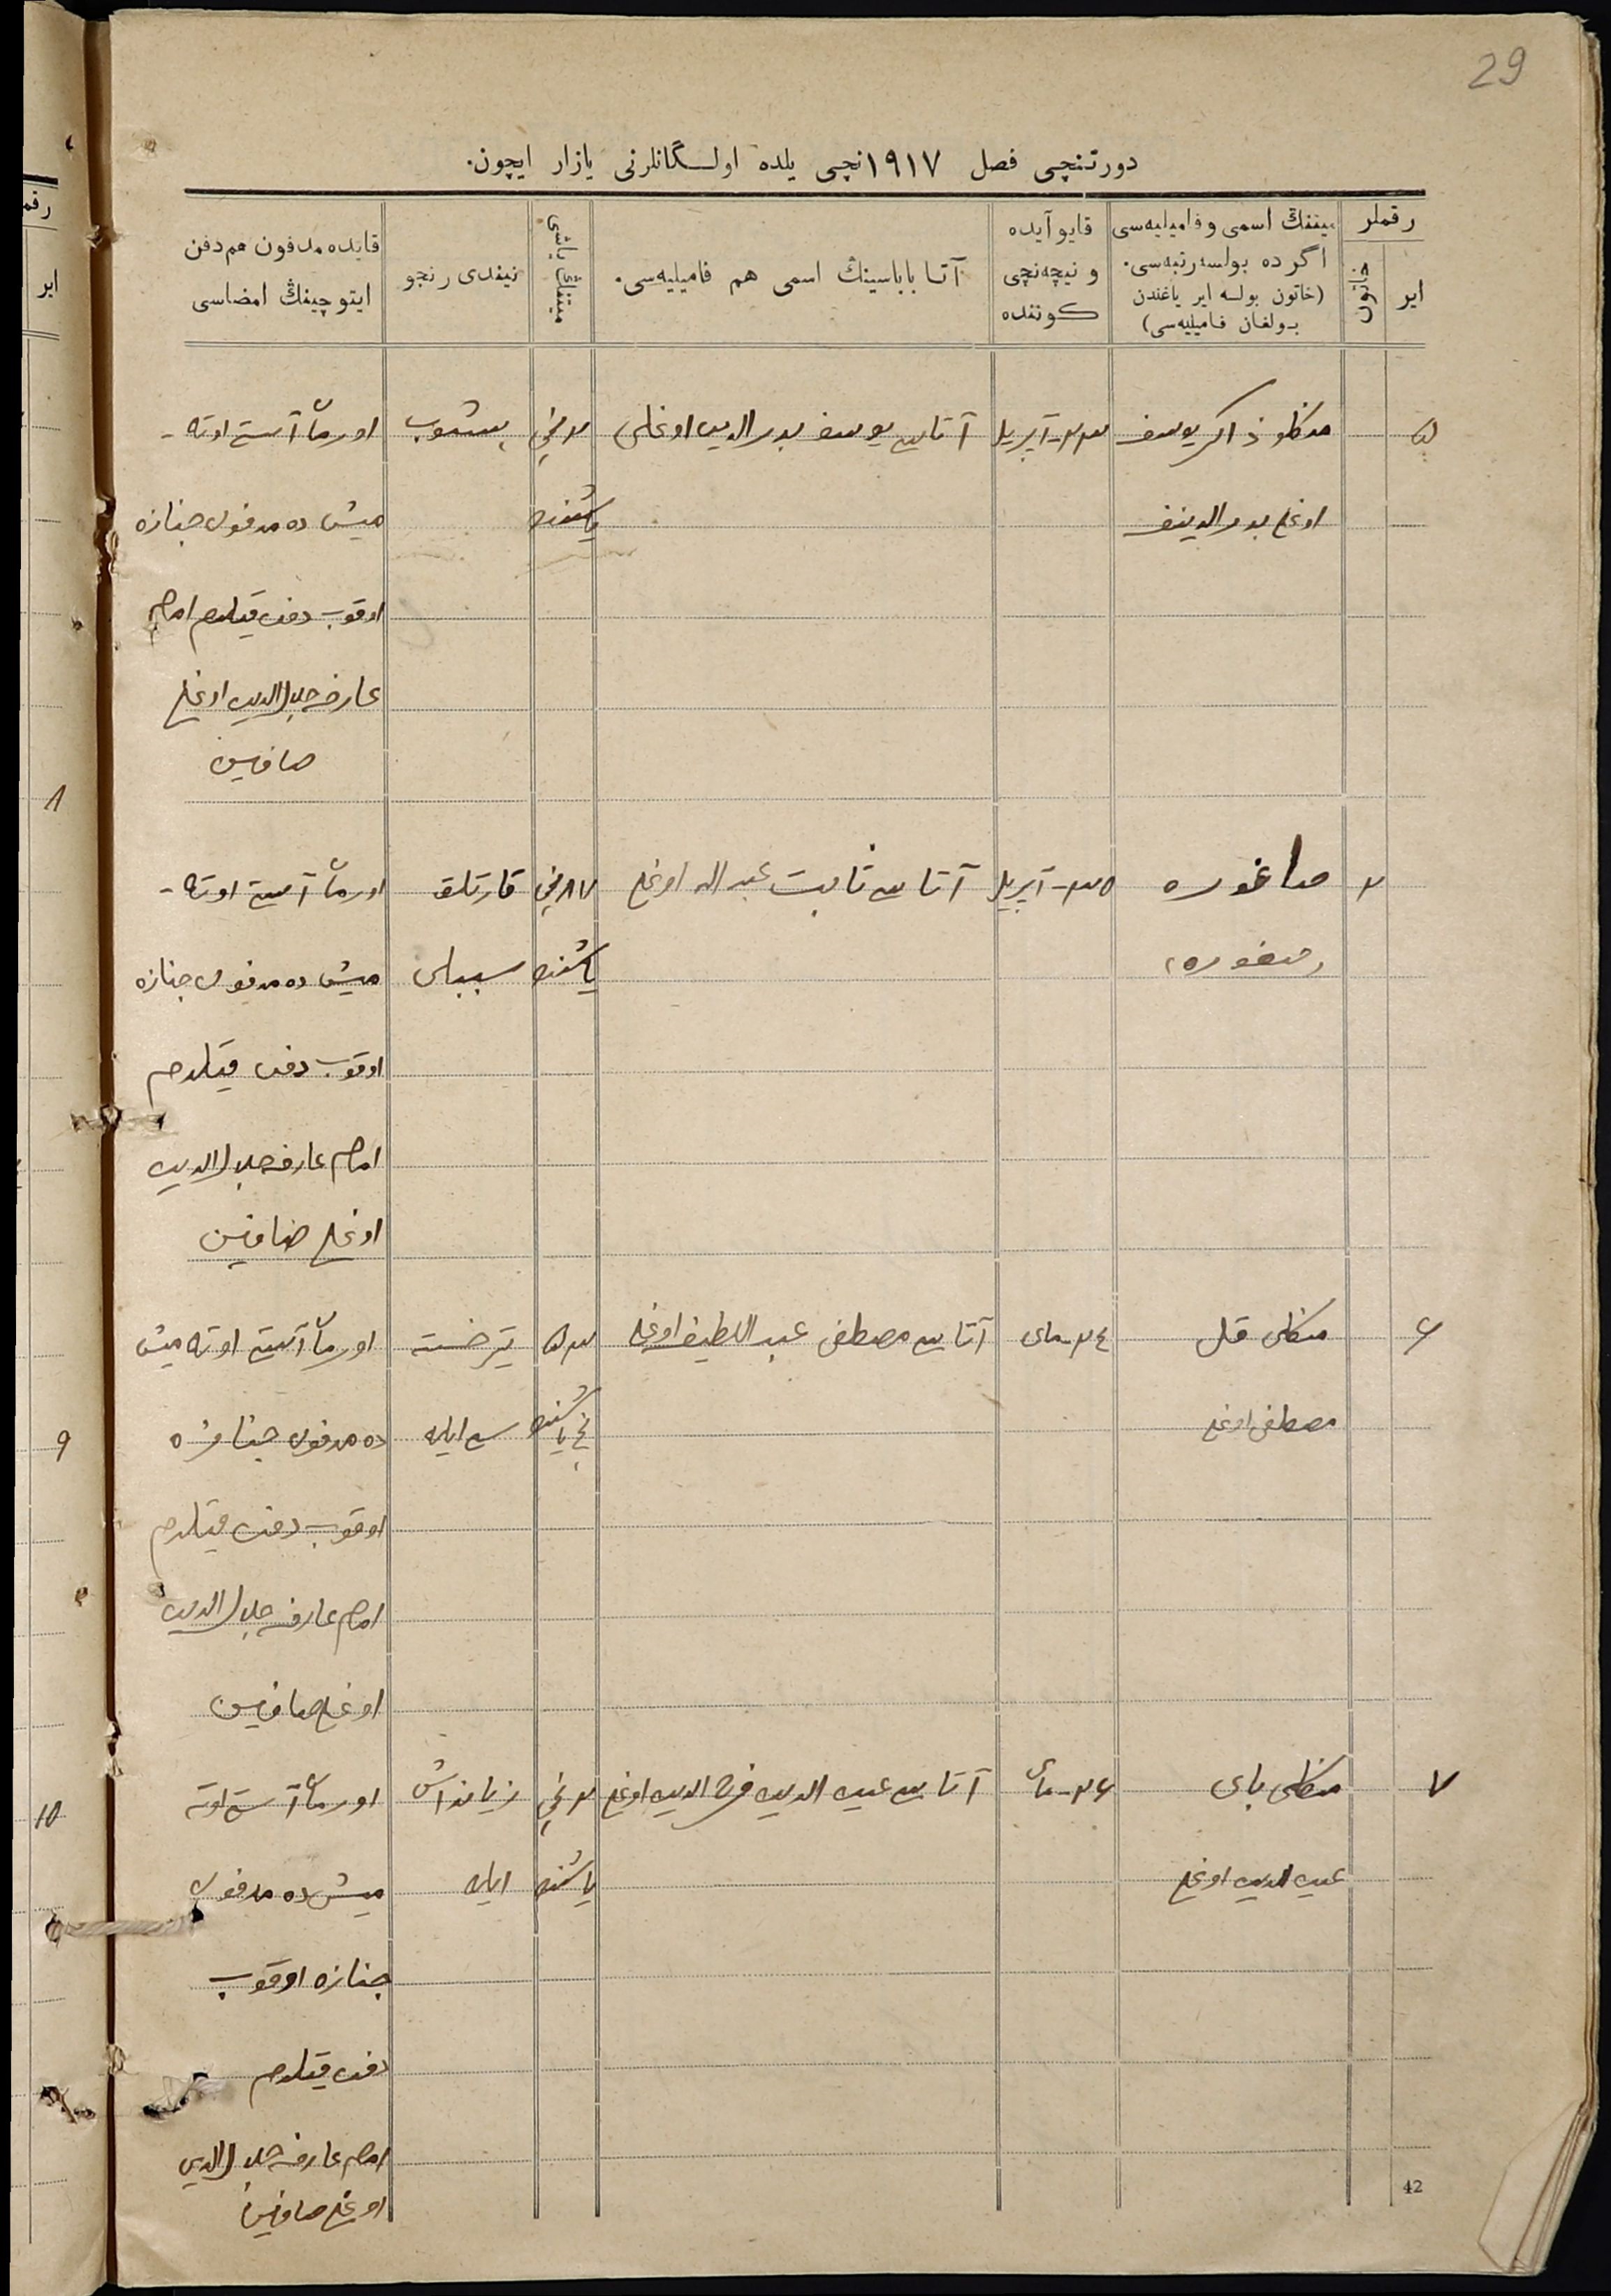 29
دورتنچی فصل ۱۹۱۷نچی یلده اولـگانلرنی یازار ایچون.
رقملر
ایر
خاتون
میتنڭ اسمی و فامیلیه‌سی
اگر ده بولسه رتبه‌سی.
(خاتون بولسه ایر یاغندن
بـولغان فامیلیه‌سی)
قایو آیده
و نیچه‌نچی
كوننده
آتا باباسینڭ اسمی هم فامیلیه‌سی.
میتنڭ یاشی
نیندی رنجو
قایده مدفون هم دفن
ایتوچینڭ امضاسی
۵
ذاكر یوسف
اوغلی بدرالدینف
۲۳-آپریل
آتاسی یوسف بدرالدین اوغلی
۲ نچی
یاشنده
اورماآستی اوته-
میش ده مدفون جنازه
اوقوب دفن قیلدم امام
عارف جلال الدین اوغلی
۲
صاغوره
(صغوره)
۲۵-آپریل
آتاسی ثابت عبد الله اوغلی
۸۷ نچی
یاشنده
قارتلق
سببلی
اورماآستی اوته-
میش ده مدفون جنازه
اوقوب دفن قیلدم
امام عارف جلال الدین
اوغلی
۶
منكلی قل
مصطفی اوغلی
۲۴-مای
آتاسی مصطفی عبد اللطیف اوغلی
۵۳
نچی یاشنده
اورماآستی اوته میش
ده مدفون جنازه
اوقوب دفن قیلدم
امام عارف جلال الدین
اوغلی
۷
منكلی بای
۲۶-مای
۲ نچی
یاشنده
ایله
اورماآستی اوته
میش ده مدفون
جنازه اوقوب
دفن قیلدم
امام عارف جلال الدین
اوغلی
42
رقم
ایر
۸
۹
۱۰